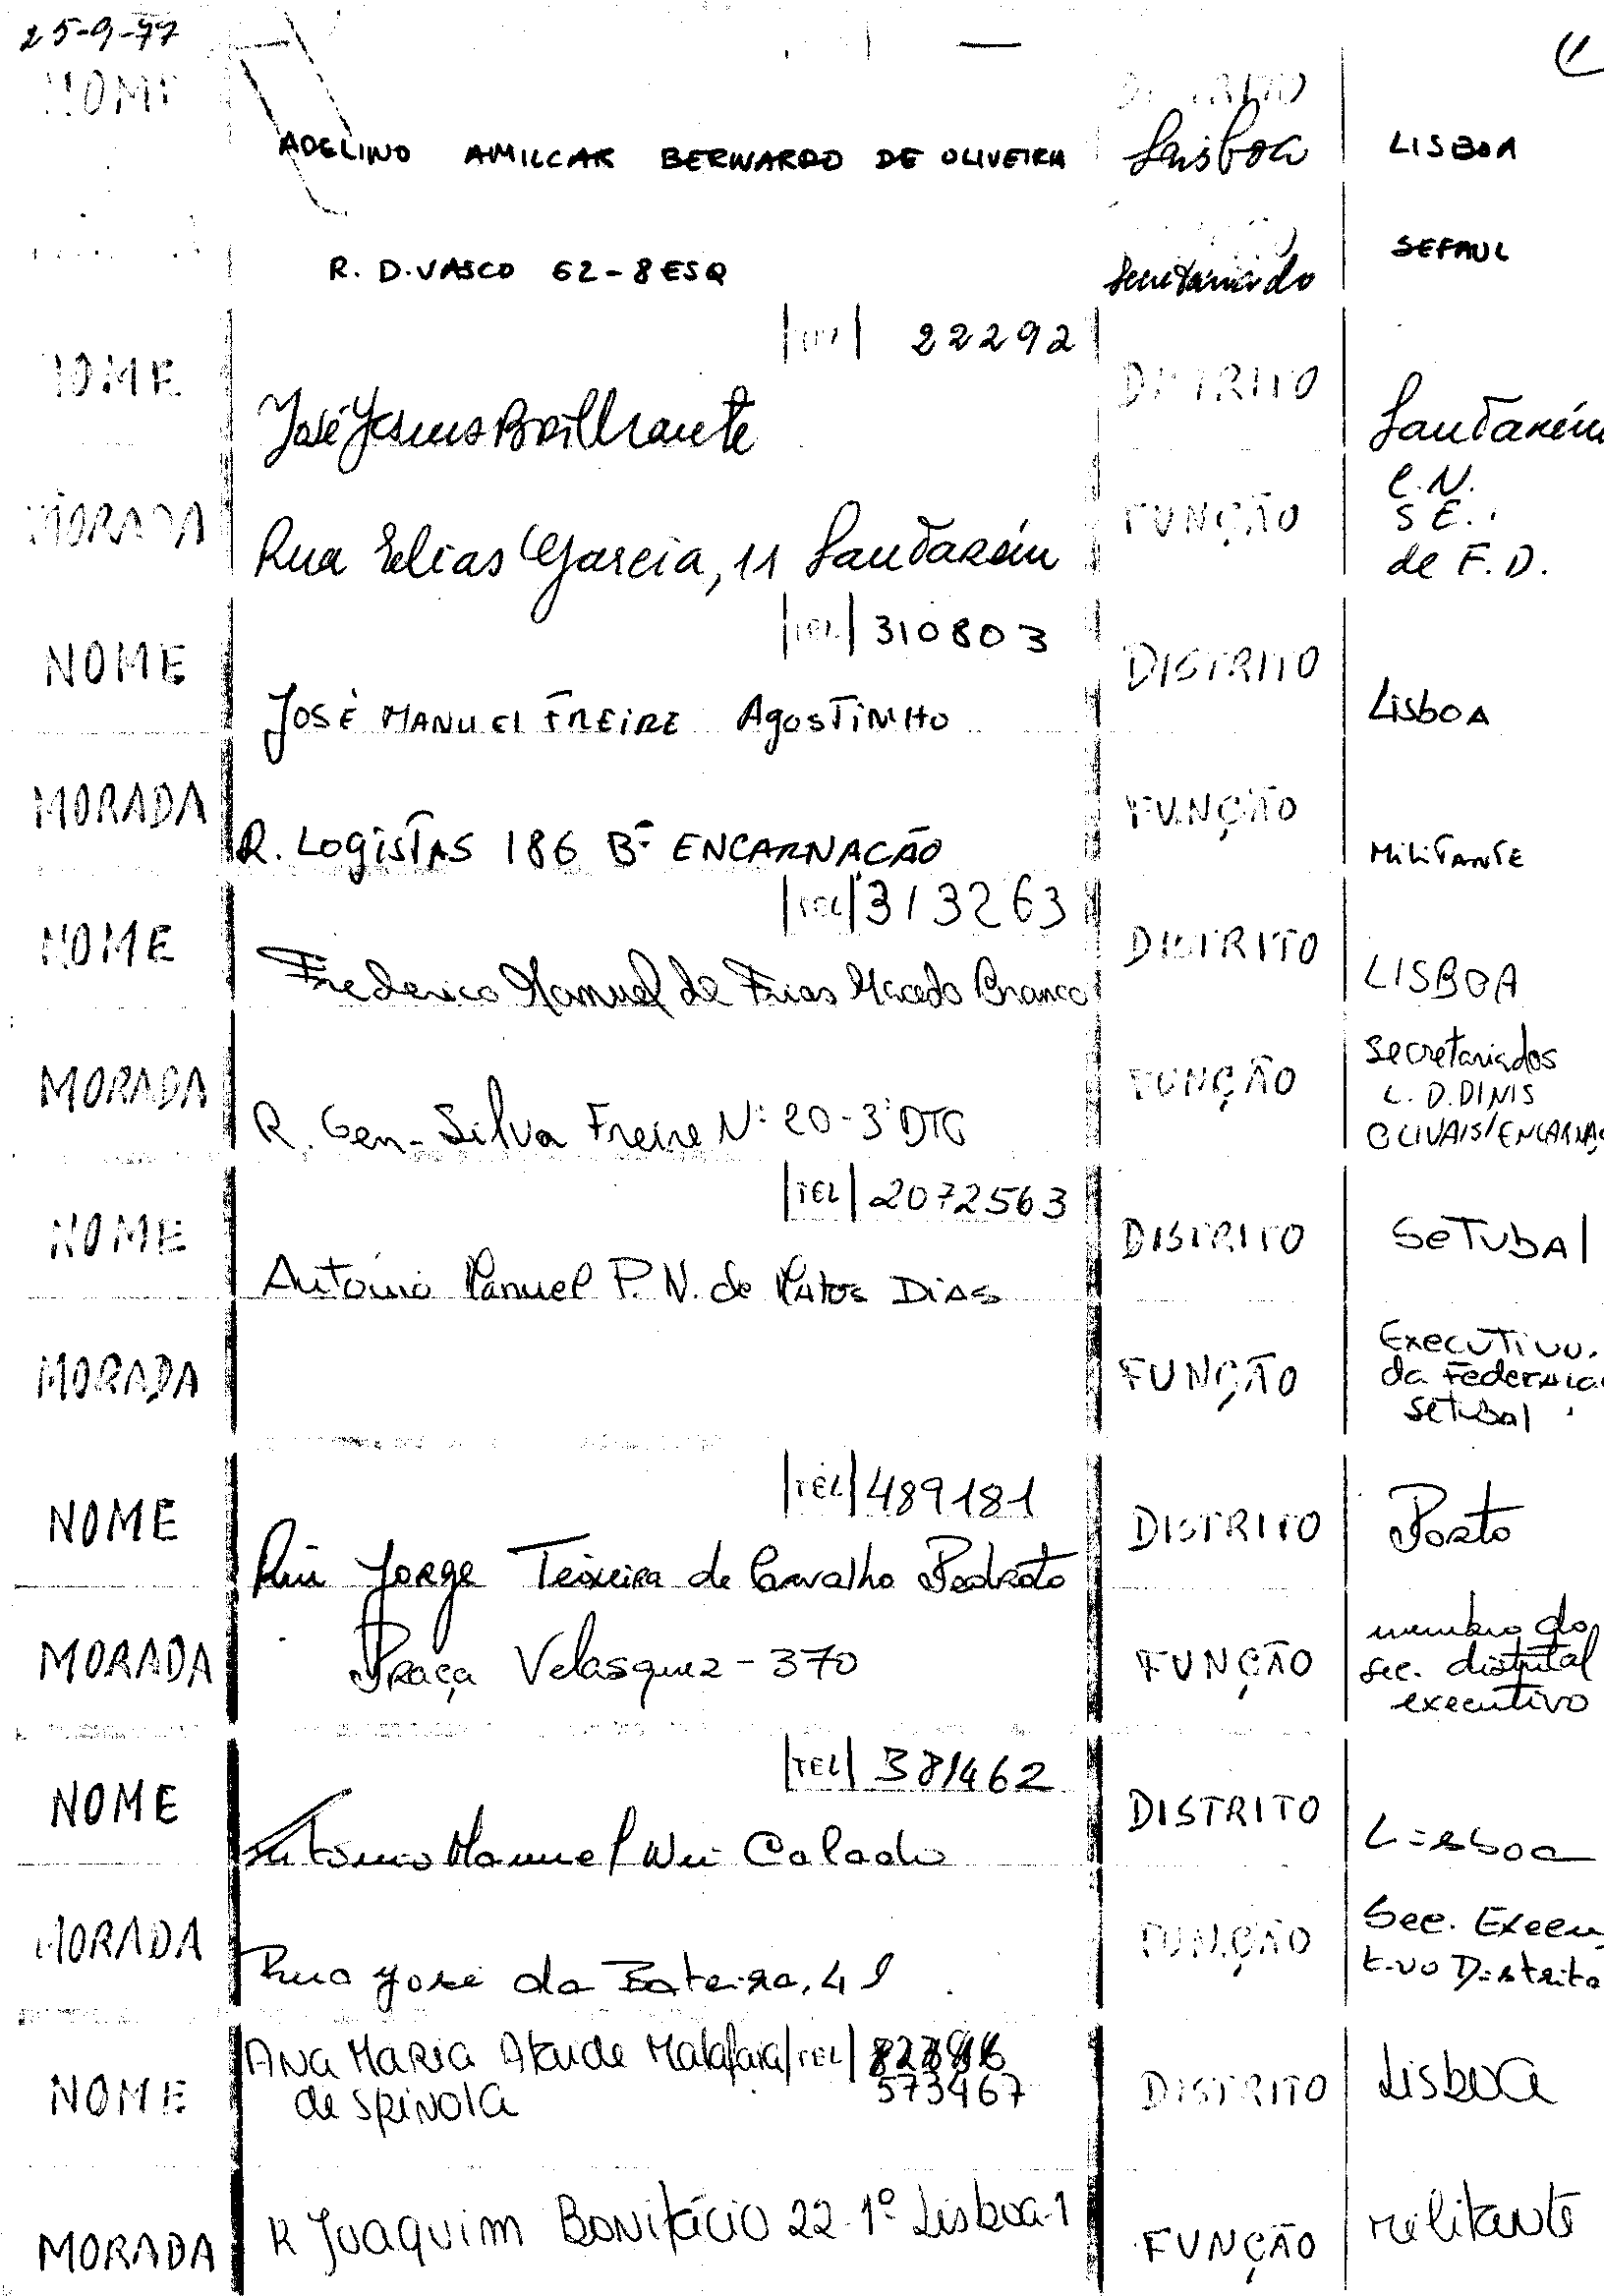 25-9-77
NOME
DISTRITO
ADELINO AMILCAR BERNARDO DE OLIVEIRA Lisboa LISBOA
R. D. VASCO 62-8 ESQ Secretariado SEFAUL
22292
NOME DISTRITO
José Jesus Brilhante Santarém
MORADA FUNÇÃO C.N.
S E.
de F.D.
Rua Elias Garcia, 11 Santarém
TEL 310803
NOME DISTRITO
JOSÉ MANUEL FREIRE AgosTiNHo LisboA
MORADA FUNÇÃO
R. LogisTAS 186 Bº ENCARNAÇÃO MiLiTANTE
TEL 313263
NOME DISTRITO
Frederico Manuel de Frias Macedo Branco LISBOA
MORADA FUNÇÃO Secretariados
L. D. DINIS
OLIVAIS/ENCARNAÇ
R. Gen- Silva Freire Nº 20-3º DTO
TEL 2072563
NOME DISTRITO SeTubAl
António Manuel P. N. de Matos DiAS
MORADA FUNÇÃO Executivo.
da Federaca
Setubal
TEL 489181
NOME DISTRITO Porto
Rui Jorge Teixeira de Carvalho Pedroto
MORADA Praça Velasquez - 370 FUNÇÃO membro do
sec. distrital
executivo
TEL 381462
NOME DISTRITO
António Manuel Calado Lisboa
MORADA FUNÇÃO Sec. Execu
tivo Distrita
Rua José da
ANA MARIA Ataide Malafaia TEL
de SPINOLA 573467
NOME DISTRITO Lisboa
MORADA R Joaquim Bonifácio 22-1º Lisboa-1 FUNÇÃO militante